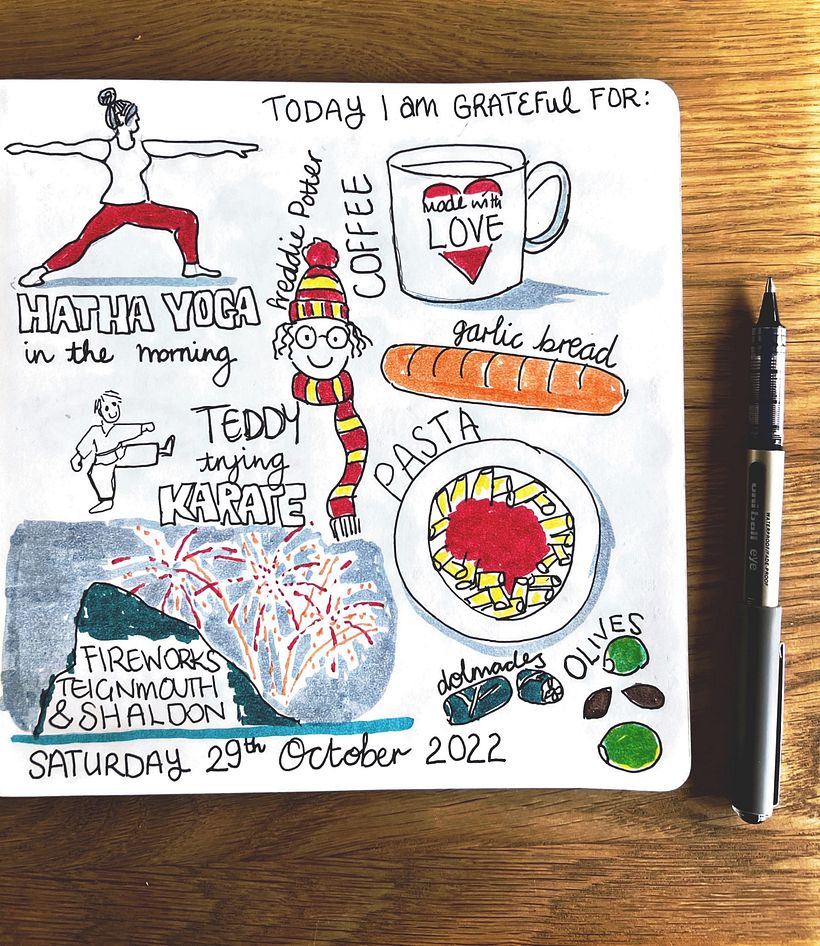 TODAY I am GRATEFUL FOR:
HATHA YOGA
in the morning
freddie Potter
COFFEE
made with
LOVE
garlic bread
TEDDY
trying
KARATE
PASTA
FIREWORKS
TEIGNMOUTH
& SHALDON
dolmades
OLIVES
SATURDAY 29th October 2022
uniball eye